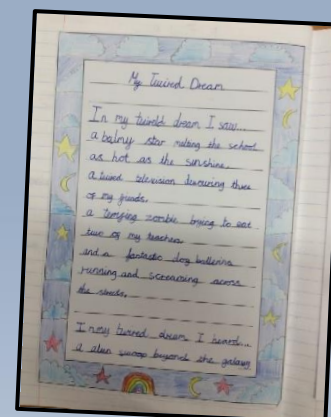 My Twired Dream
In my twireld dream I saw...
a balmy star making the school
as hot as the sunshine.
a twired television devouring three
of my friends.
a terrifing zombie trying to eat
two of my teachers
and a fantastic dog ballerina
running and screaming across
the streets.
In my twired dream I heard...
a alien beyond the galaxy